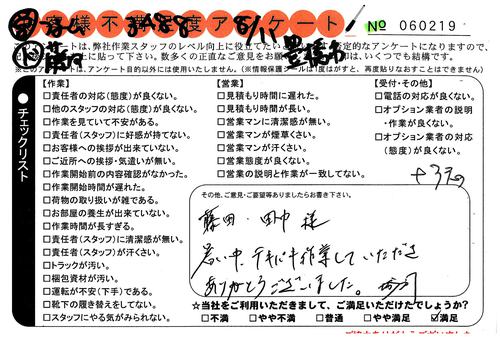 お客様不満足度アンケート
8/11
豊橋市
№ 060219
このアンケートは、弊社作業スタッフのレベル向上に役立てたい
定的なアンケートになりますので、
上に貼って下さい。数多くの正直なご意見をお願
は、いくつでも結構です。
※このアンケートは、アンケート目的以外には使用いたしません。(※情報保護シールは1度はがすと、再度貼りなおすことはできません)
チェックリスト
【作業】
□責任者の対応(態度)が良くない。
□他のスタッフの対応(態度)が良くない。
□作業を見ていて不安がある。
□責任者(スタッフ)に好感が持てない。
□お客様への挨拶が出来ていない。
□ご近所への挨拶・気遣いが無い。
□作業開始前の内容確認がなかった。
□作業開始時間が遅れた。
□荷物の取り扱いが雑である。
□お部屋の養生が出来ていない。
□作業時間が長すぎる。
□責任者(スタッフ)に清潔感が無い。
□責任者(スタッフ)が汗くさい。
□トラックが汚い。
□梱包資材が汚い。
□運転が不安(下手)である。
□靴下の履き替えをしてない。
□スタッフにやる気がみられない。
【営業】
□見積もり時間に遅れた。
□見積もり時間が長い。
□営業マンに清潔感が無い。
□営業マンが煙草くさい。
□営業マンが汗くさい。
□営業態度が良くない。
□営業の説明と作業が一致してない。
【受付・その他】
□電話の対応が良くない。
□オプション業者の説明
・作業が良くない。
□オプション業者の対応
(態度)が良くない。
その他、ご意見・ご要望等ありましたらお書き下さい。
藤田・田中 様
暑い中、テキパキ作業していただき
ありがとうございました。
☆当社をご利用いただきまして、ご満足いただけたでしょうか？
□不満 □やや不満 □普通 □やや満足 ☑満足